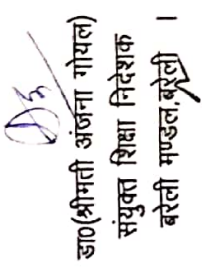 डा0(श्रीमती अंजना गोयल)
संयुक्त शिक्षा निदेशक
बरेली मण्डल,बरेली ।